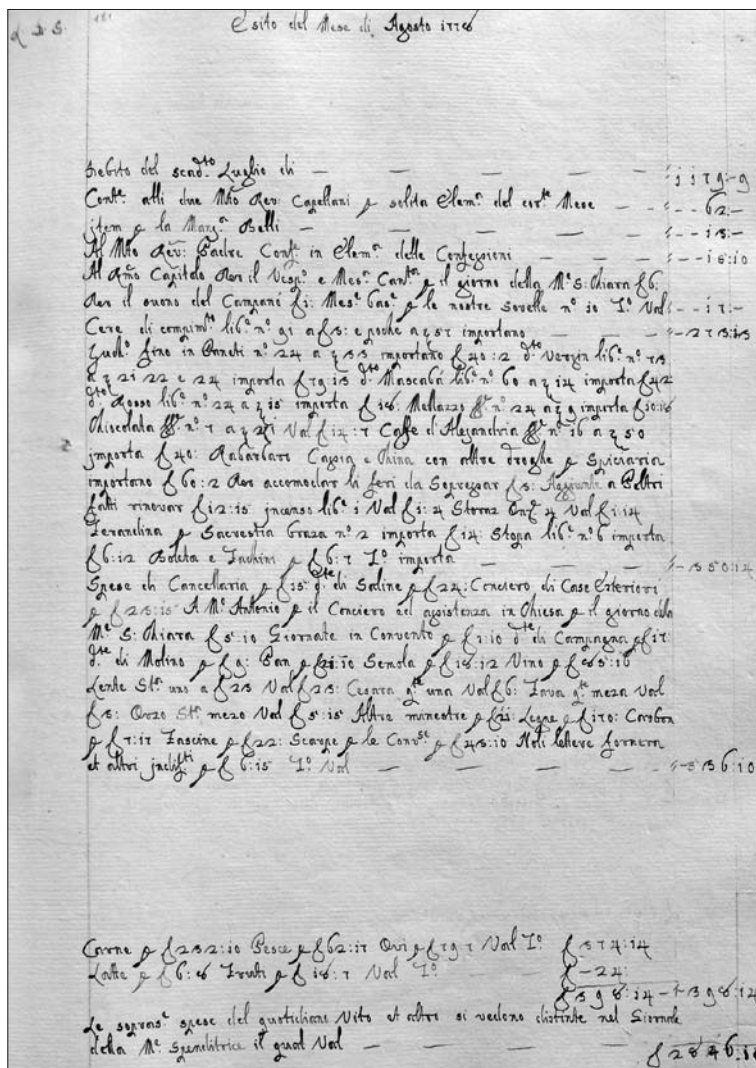 L. D. S. 181 Esito del Mese di Agosto 1778
Debito del scad.to Luglio di — — — — — 1179:9
Cont.e alli due Mto Rev: Capellani p solita Elem.a del cor.te Mese — 62:—
item p la Mang.a Belli — — — — — 18:—
Al Mto Rev: Padre Conf.e in Elem.a delle Confessioni — — 18:10
Al Rmo Capitolo Per il Vesp.o e Mes.a Cant.a p il giorno della M.e S: Chiara f 6:
Per il suono del Campani f 1: Mes.e bas.e p le nostre Sorelle n.o 10 T.o Val — 17:—
Cere di compim.to lib.e n.o 91 a f 3: e poche a 57 importano — — 273:13
Zuch.o fino in Paneti n.o 24 a 33 importano f 40:2 d.to Verzin lib.e n.o 73
a 21 22 e 24 importa f 79:13 d.to Mascabà lib.e n.o 60 a 14 importa f 42
d.to Rosso lib.e n.o 24 a 15 importa f 18: Mellazzo n.o 24 a 9 importa f 10:16
Chiocolata n.o 7 a Val f 14:7 Caffe d'Alejandria n.o 16 a 50
importa f 40: Rabarbaro Cassia e China con altre droghe p Spiciaria
importano f 60:2 Per accomodar li feri da Sopressar f 3: Aggiunta a Peltri
fatti rinovar f 12:15 incenso lib.e 1 Val f 1:4 Storaz Onz.e 4 Val f 1:14
Ferandina p Sacrestia Braza n.o 2 importa f 14: Stopa lib.e n.o 6 importa
f 6:12 Boleta e Fachini p f 6:7 T.o importa — — — 350:14
Spese di Cancellaria p f 15 d.te di Sadine p f 24: Conciero di Case Esteriori
p f 23:15 A M.o Antonio p il Conciero ed assistenza in Chiesa p il giorno della
M.e S: Chiara f 5:10 Giornate in Convento p f 1:10 d.te di Campagna p f 17:
d.te di Molino p f 9: Pan p f 21:10 Semola p f 18:12 Vino p f 85:16
Lente St.o uno a f 23 Val f 23: Cesara q.te una Val f 6: Fava q.te meza Val
f 3: Orzo St.o mezo Val f 5:15 Altre minestre p f 21: Legne p f 170: Carbon
p f 7:17 Fascine p f 22: Scarpe p le Conv.se p f 48:10 Noli lettere fornera
et altri p f 6:15 T.o Val — — — — 536:10
Carne p f 232:10 Pesce p f 62:17 Ovi p f 79 7 Val T.o f 374:14
Latte p f 6:8 Fruti p f 18:7 Val T.o f -24:
f 398:14 — 398:14
Le sopras.e spese del quotidiano Vito et altro si vedono distinte nel Giornale
della M.e Spenditrice il qual Val — — — f 2846: